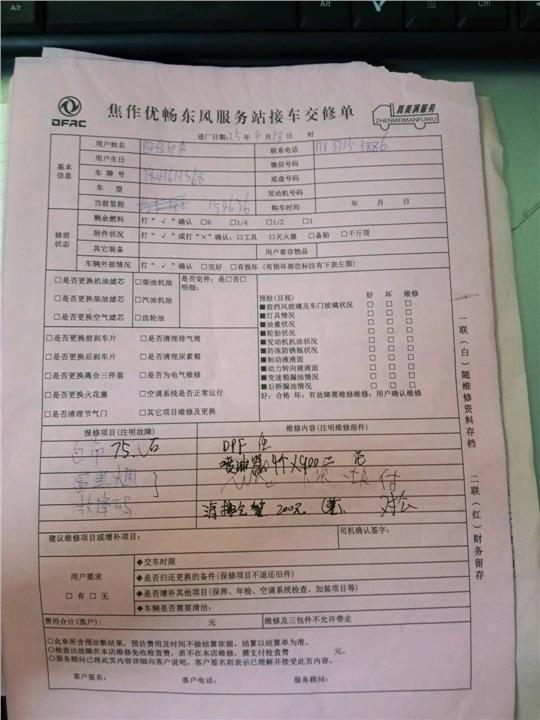 Alt
Ctrl
DFAC
焦作优畅东风服务站接车交修单
真美满服务
ZHENMEIMANFUWU
进厂日期:25年4月18日 时
基本信息
用户姓名
联系电话
用户生日
微信号码
车 牌 号
底盘号码
车 型
发动机号码
当前里程 154636
购车时间 年 月 日
修前状态
剩余燃料 打“√”确认 □0 □1/4 □1/2 □1
附件状况 打“√”或打“×”确认:□工具 □灭火器 □备胎 □千斤顶
其它装备 用户寄存物品
车辆外部情况 打“√”确认 □完好 □有损坏(有损坏部位标注有下表左图)
□是否更换机油滤芯 □柴油机油 是否定件:是□否□
明细:
□是否更换柴油滤芯 □汽油机油
□是否更换空气滤芯 □齿轮油
□是否更换前刹车片 □是否清理排气筒
□是否更换后刹车片 □是否清理尿素箱
□是否更换离合三件套 □是否为电气维修
□是否更换火花塞 □空调系统是否正常运行
□是否清理节气门 □其它项目维修及更换
预检(目视) 好 坏 维修
■前挡风玻璃及车门玻璃状况 □ □ □
■灯具情况 □ □ □
■油量状况 □ □ □
■轮胎状况 □ □ □
■发动机机油状况 □ □ □
■防冻防锈瓶状况 □ □ □
■制动液液面 □ □ □
■动力转向液液面 □ □ □
■变速箱漏油情况 □ □ □
■后桥漏油情况 □ □ □
好:合格 坏:有故障需维修维修:用户确认维修
报修项目(注明故障)
维修内容(注明维修部件)
DPF
喷油器 4个×400= 元
冒黑烟
付
故障码
200元
建议维修项目或增补项目:
司机确认签字:
用户要求
□有 □无
◆交车时限
◆是否归还更换的备件(保修项目不退还旧件)
◆是否增补其他项目(保养、年检、空调系统检查、加装项目等)
◆车辆是否需要清洁:
费用合计(客户): 元
维修及三包件不允许带走
○此单所含预诊断结果,预估费用及时间不做结算依据,结算以结算单为准。
○检查出故障在本店维修免收检查费,若不在本店维修,需支付检查费 元。
○服务顾问已将此页内容详细向客户说明,客户签名则表示已理解并接受此页内容。
客户签名: 客户电话: 服务顾问:
一联(白)随维修资料存档
二联(红)财务留存